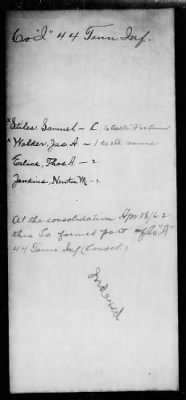 Co "I" 44 Tenn Inf.
"Stiles, Samuel ~ L
"Walker, Jas A. ~ 1
Eslick, Thos A ~ 2
Jenkins, Newton M ~ 2
At the consolidation Apr 18/62
this Co formed part of Co "A"
44 Tenn Inf (Consol.)
Indexed